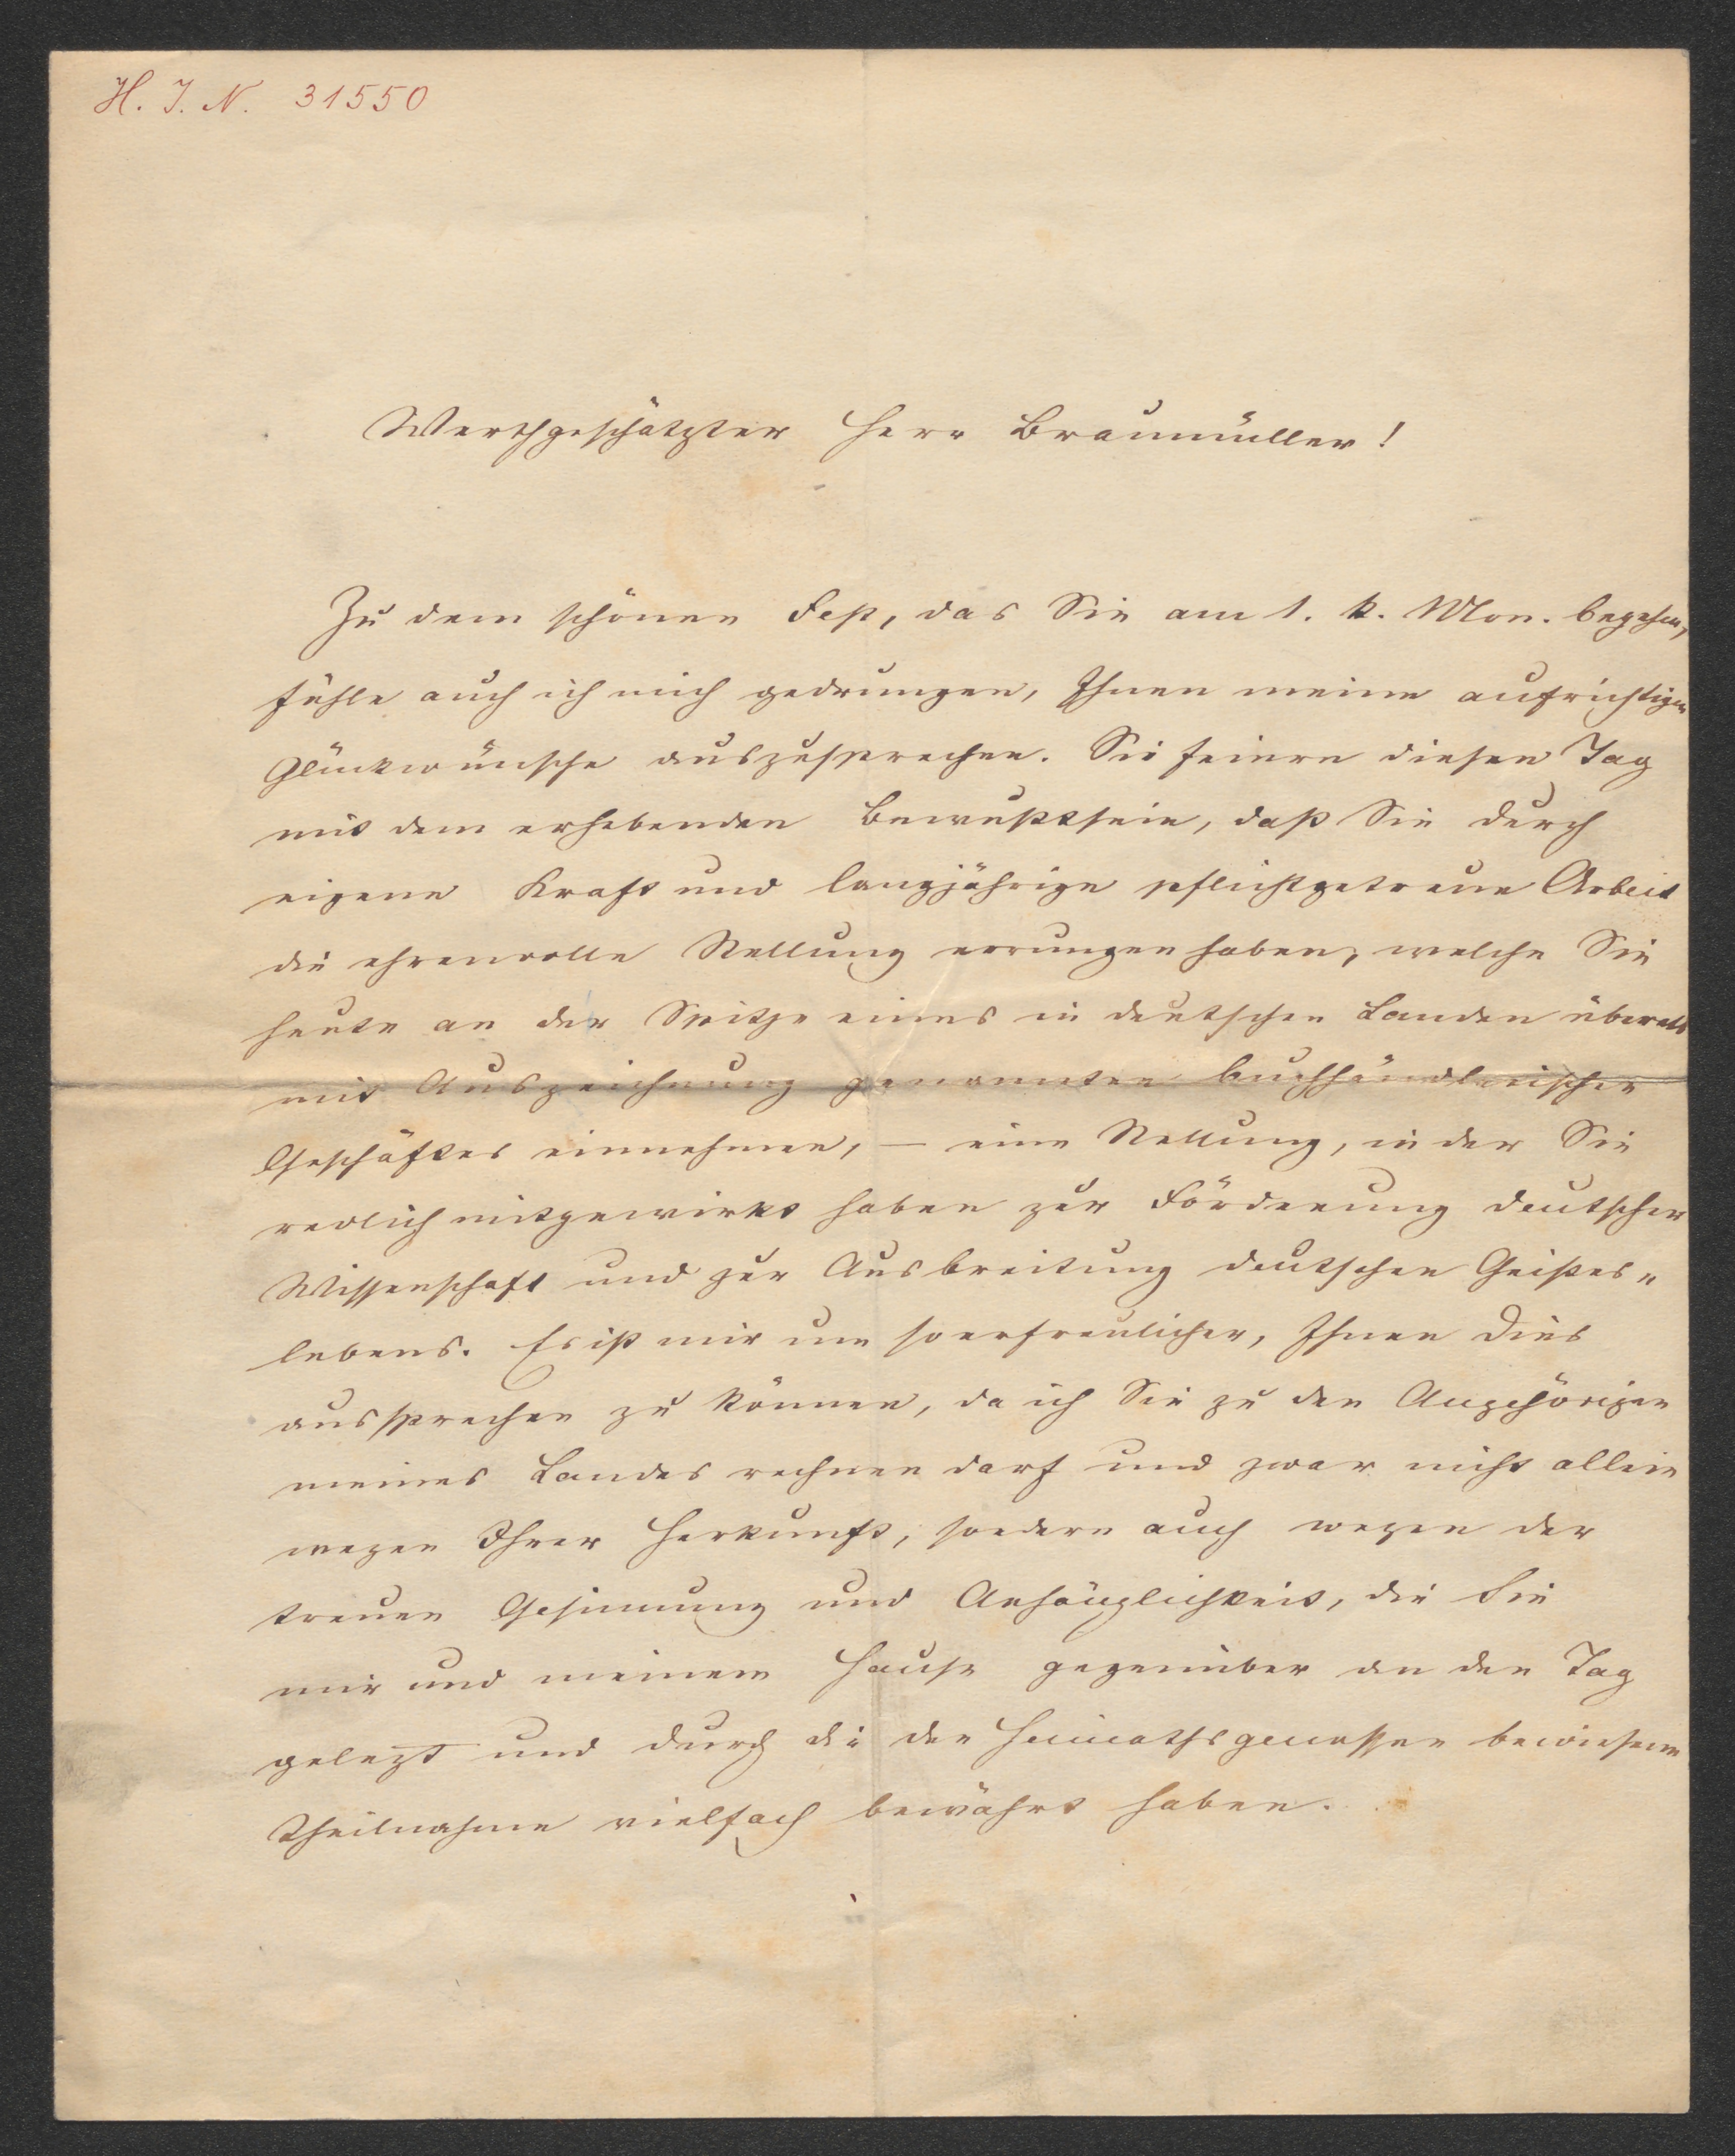 H. I. N. 31550
Werthgeschätzter Herr Braumüller!
Zu dem schönen Fest, das Sie am 1. k. Mon. begehen,
fühle auch ich mich gedrungen, Ihnen meine aufrichtigen
Glückwünsche auszusprechen. Sie feiern diesen Tag
mit dem erhebenden Bewußtsein, daß Sie durch
eigene Kraft und langjährige pflichtgetreue Arbeit
die ehrenvolle Stellung errungen haben, welche Sie
heute an der Spitze eines in deutschen Landen überall
mit Auszeichnung genannten buchhändlerischen
Geschäftes einnehmen, — eine Stellung, in der Sie
redlich mitgewirkt haben zur Förderung deutscher
Wissenschaft und zur Ausbreitung deutschen Geistes„
lebens. Es ist mir um so erfreulicher, Ihnen dies
aussprechen zu können, da ich Sie zu den Angehörigen
meines Landes rechnen darf und zwar nicht allein
wegen Ihrer Herkunft, sondern auch wegen der
treuen Gesinnung und Anhänglichkeit, die Sie
mir und meinem Hause gegenüber an den Tag
gelegt und durch die den Heimathsgenossen bewiesene
Theilnahme vielfach bewährt haben.